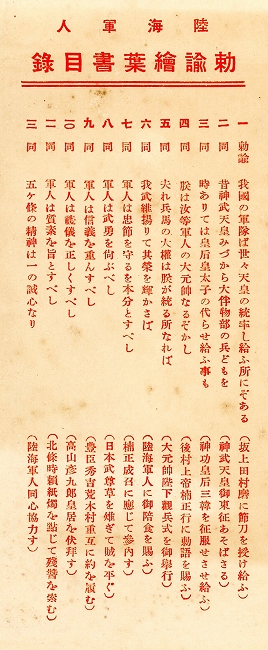 陸海軍人
勅諭繪葉書目錄
一 勅諭 我國の軍隊は世々天皇の統率し給ふ所にぞある (坂上田村麿に節刀を授け給ふ)
二 同 昔神武天皇みづから大伴物部の兵どもを (神武天皇御東征あそばさる)
三 同 時ありては皇后皇太子の代らせ給ふ事も (神功皇后三韓を征服せさせ給ふ)
四 同 朕は汝等軍人の大元帥なるぞかし (後村上帝楠正行に勅語を賜ふ)
五 同 夫れ兵馬の大權は朕が統る所なれば (大元帥陛下觀兵式を御擧行)
六 同 我武維揚りて其榮を輝かさば (陸海軍人に御陪食を賜ふ)
七 同 軍人は忠節を守るを本分とすべし (楠正成召に應じて參內す)
八 同 軍人は武勇を尙ぶべし (日本武尊草を雄ぎて賊を平ぐ)
九 同 軍人は信義を重んずべし (豊臣秀吉荒木村重互に約を履む)
一〇 同 軍人は禮儀を正しくすべし (高山彥九郎皇居を伏拜す)
一一 同 軍人は質素を旨とすべし (北條時賴紙燭を點じて殘醬を索む)
一三 同 五ケ條の精神は一の誠心なり (陸海軍人同心協力す)